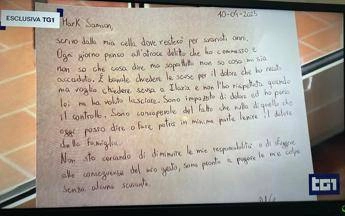 ESCLUSIVA TG1
10-04-2025
Mark Samson
scrivo dalla mia cella dove resterò per svariati anni.
Ogni giorno penso all'atroce delitto che ho commesso e
non so che cosa dire ma soprattutto non so cosa mi sia
accaduto. È banale chiedere le scuse per il dolore che ho recato
ma voglio chiedere scusa a Ilaria e non l'ho rispettata quando
lei mi ha voluto lasciare. Sono impazzito di dolore ed ho perso
il controllo. Sono consapevole del fatto che nulla di quello che
oggi posso dire o fare potrà in minima parte lenire il dolore
della famiglia.
Non sto cercando di diminuire le mie responsabilità o di sfuggire
alle conseguenze del mio gesto, sono pronto a pagare le mie colpe
senza alcuna scusante.
TG1